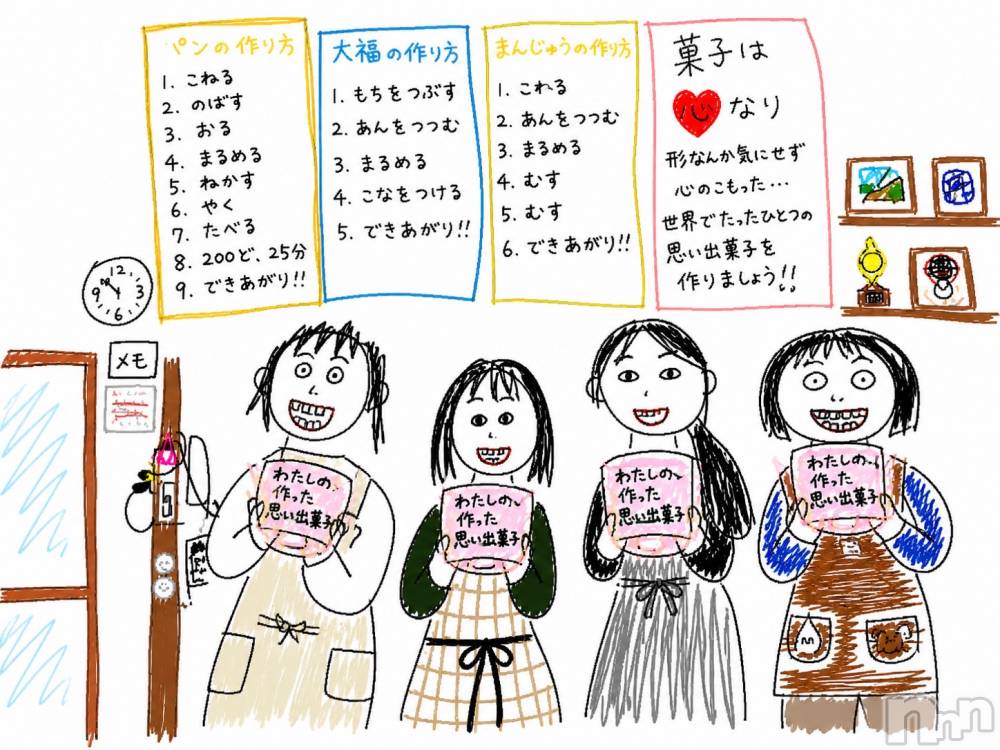 パンの作り方
1. こねる
2. のばす
3. おる
4. まるめる
5. ねかす
6. やく
7. たべる
8. 200ど、25分
9. できあがり!!
大福の作り方
1. もちをつぶす
2. あんをつつむ
3. まるめる
4. こなをつける
5. できあがり!!
まんじゅうの作り方
1. これる
2. あんをつつむ
3. まるめる
4. むす
5. むす
6. できあがり!!
菓子は
心なり
形なんか気にせず
心のこもった…
世界でたったひとつの
思い出菓子を
作りましょう!!
12
9 3
6
メモ
わたしの
作った
思い出菓子
わたしの
作った
思い出菓子
わたしの
作った
思い出菓子
わたしの
作った
思い出菓子
nnn